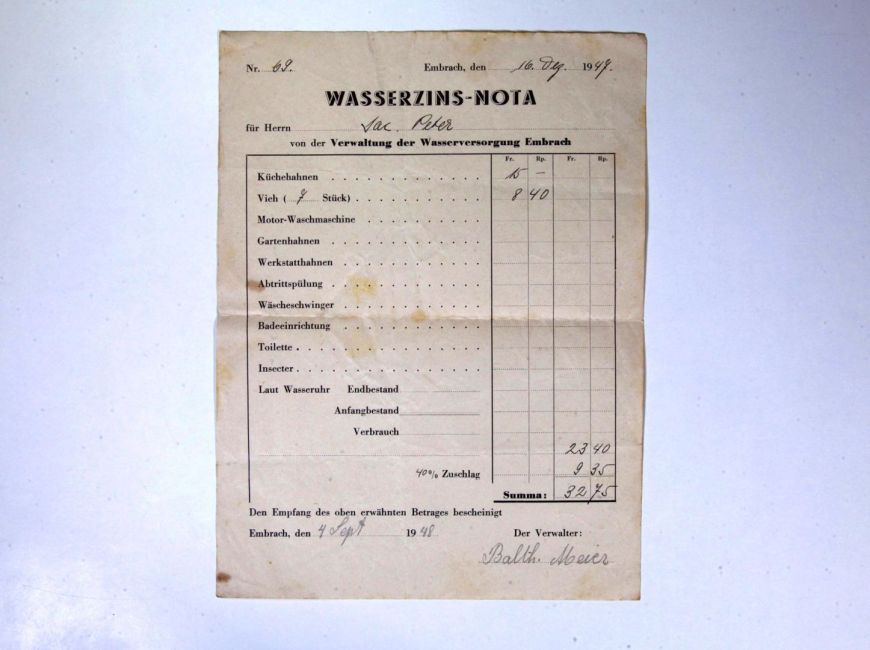 Nr. 69. Embrach, den 16. Dez. 1947.
WASSERZINS-NOTA
für Herrn Jac. Peter
von der Verwaltung der Wasserversorgung Embrach
Fr. Rp. Fr. Rp.
Küchehahnen . . . . . . . . . . . . 15 –
Vieh ( 7 Stück) . . . . . . . . . . . 8 40
Motor-Waschmaschine . . . . . . . . . .
Gartenhahnen . . . . . . . . . . . .
Werkstatthahnen . . . . . . . . . . .
Abtrittspülung . . . . . . . . . . . .
Wäscheschwinger . . . . . . . . . . .
Badeeinrichtung . . . . . . . . . . .
Toilette . . . . . . . . . . . . . .
Insecter . . . . . . . . . . . . . .
Laut Wasseruhr Endbestand
Anfangbestand
Verbrauch
23 40
40% Zuschlag 9 35
Summa: 32 75
Den Empfang des oben erwähnten Betrages bescheinigt
Embrach, den 4 Sept 1948 Der Verwalter:
Balth. Meier